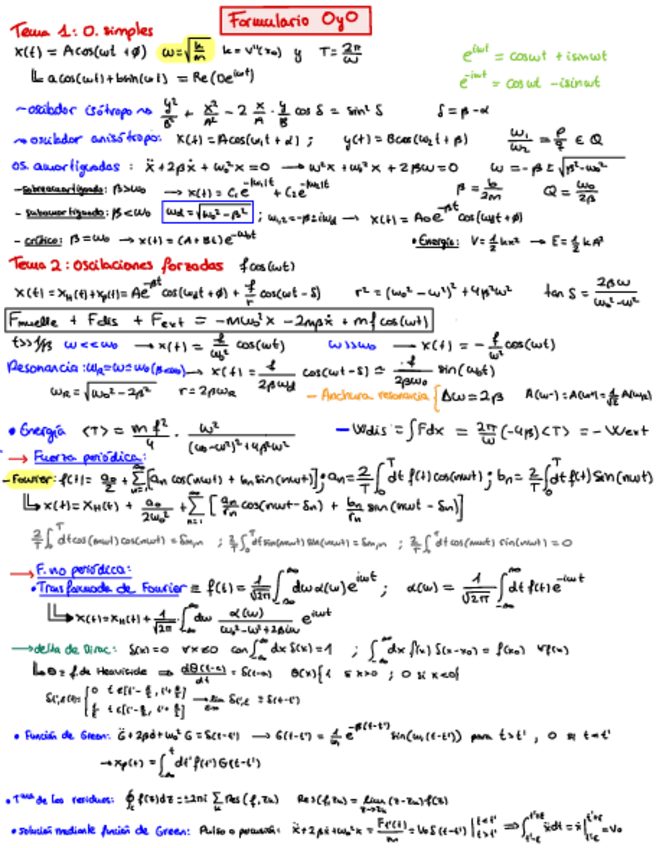 Formulario OyO
Tema 1: O. simples
x(t) = A cos(ωt + φ) ω = √(k/m) k = V''(x₀) y T = 2π/ω
e^{iωt} = cosωt + i sinωt
↳ a cos(ωt) + b sin(ωt) = Re(De^{iωt})
e^{-iωt} = cosωt - i sinωt
~ oscilador isótropo ~> y²/B² + x²/A² - 2 x/A · y/B cos δ = sin² δ δ = β - α
~> oscilador anisótropo: x(t) = A cos(ω₁t + α) ; y(t) = B cos(ω₂t + β) ω₁/ω₂ = p/q ∈ Q
os. amortiguadas : ẍ + 2βẋ + ω₀²x = 0 → ω²x + ω₀²x + 2βω = 0 ω = -β ± √(β² - ω₀²)
- sobreamortiguado: β > ω₀ → x(t) = C₁e^{-|ω₁|t} + C₂e^{-|ω₂|t} β = b/2m Q = ω₀/2β
- subamortiguado: β < ω₀ ωd = √(ω₀² - β²) ; ω₁,₂ = -β ± iωd → x(t) = A₀e^{-βt} cos(ωdt + φ)
- crítico: β = ω₀ → x(t) = (A + Bt)e^{-ω₀t} • Energía: V = ½kx² → E = ½kA²
Tema 2: Oscilaciones forzadas f cos(ωt)
x(t) = x_H(t) + x_p(t) = Ae^{-βt} cos(ωdt + φ) + f/r cos(ωt - δ) r² = (ω₀² - ω²)² + 4β²ω² tan δ = 2βω/(ω₀² - ω²)
Fmuelle + Fdis + Fext = -mω₀²x - 2mβẋ + mf cos(ωt)
t >> 1/β ω << ω₀ → x(t) = f/ω₀² cos(ωt) ω >> ω₀ → x(t) = -f/ω² cos(ωt)
Resonancia : ω_R = ω = ω₀ (β<<ω₀) → x(t) = f/2βωd cos(ωt - δ) = f/2βω₀ sin(ω₀t)
ω_R = √(ω₀² - 2β²) r = 2βω_R - Anchura resonancia { Δω = 2β A(ω-) = A(ω+) = 1/√2 A(ω_R)
• Energía <T> = mf²/4 · ω²/((ω₀ - ω²)² + 4β²ω²) - Wdis = ∫Fdx = 2π/ω (-4β)<T> = -Wext
→ Fuerza periódica:
- Fourier: f(t) = a₀/2 + Σ_{n=1}^∞ [aₙ cos(nωt) + bₙ sin(nωt)] ; aₙ = 2/T ∫₀^T dt f(t) cos(nωt) ; bₙ = 2/T ∫₀^T dt f(t) sin(nωt)
↳ x(t) = x_H(t) + a₀/2ω₀² + Σ_{n=1}^∞ [aₙ/rₙ cos(nωt - δₙ) + bₙ/rₙ sin(nωt - δₙ)]
2/T ∫₀^T dt cos(mωt) cos(nωt) = δm,n ; 2/T ∫₀^T dt sin(mωt) sin(nωt) = δm,n ; 2/T ∫₀^T dt cos(mωt) sin(nωt) = 0
→ F. no periódica:
• Trasformada de Fourier ≡ f(t) = 1/√2π ∫_{-∞}^∞ dω α(ω) e^{iωt} ; α(ω) = 1/√2π ∫_{-∞}^∞ dt f(t) e^{-iωt}
↳ x(t) = x_H(t) + 1/√2π ∫_{-∞}^∞ dω α(ω)/(ω₀² - ω² + 2βiω) e^{iωt}
→ delta de Dirac: δ(x) = 0 ∀x≠0 con ∫_{-∞}^∞ dx δ(x) = 1 ; ∫_{-∞}^∞ dx f(x) δ(x - x₀) = f(x₀) ∀f(x)
↳ Θ = f. de Heaviside ⇒ dΘ(t-a)/dt = δ(t-a) Θ(x) { 1 si x>0 ; 0 si x<0 }
• Función de Green: G̈ + 2βĠ + ω₀²G = δ(t-t') → G(t-t') = 1/ω₁ e^{-β(t-t')} sin(ω₁(t-t')) para t > t' , 0 si t < t'
→ x_p(t) = ∫_{-∞}^t dt' f(t') G(t-t')
• Tma de los residuos: ∮ f(z)dz = ±2πi Σ Res(f, zₖ) Res(f, zₖ) = lim (z - zₖ) f(z)
• solución mediante función de Green: Pulso o percusión: ẍ + 2βẋ + ω₀²x = = V₀ δ(t-t')